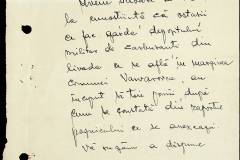 Avem
la cunoștință că ostașii
ce fac garda depozitului
militar de carburanți din
livada ce se află în marginea
comunei Vanvarovca, au
început să taie pomii după
cum se constată din raportul
pagnicului ce se anexează.
Vă rugăm a dispune